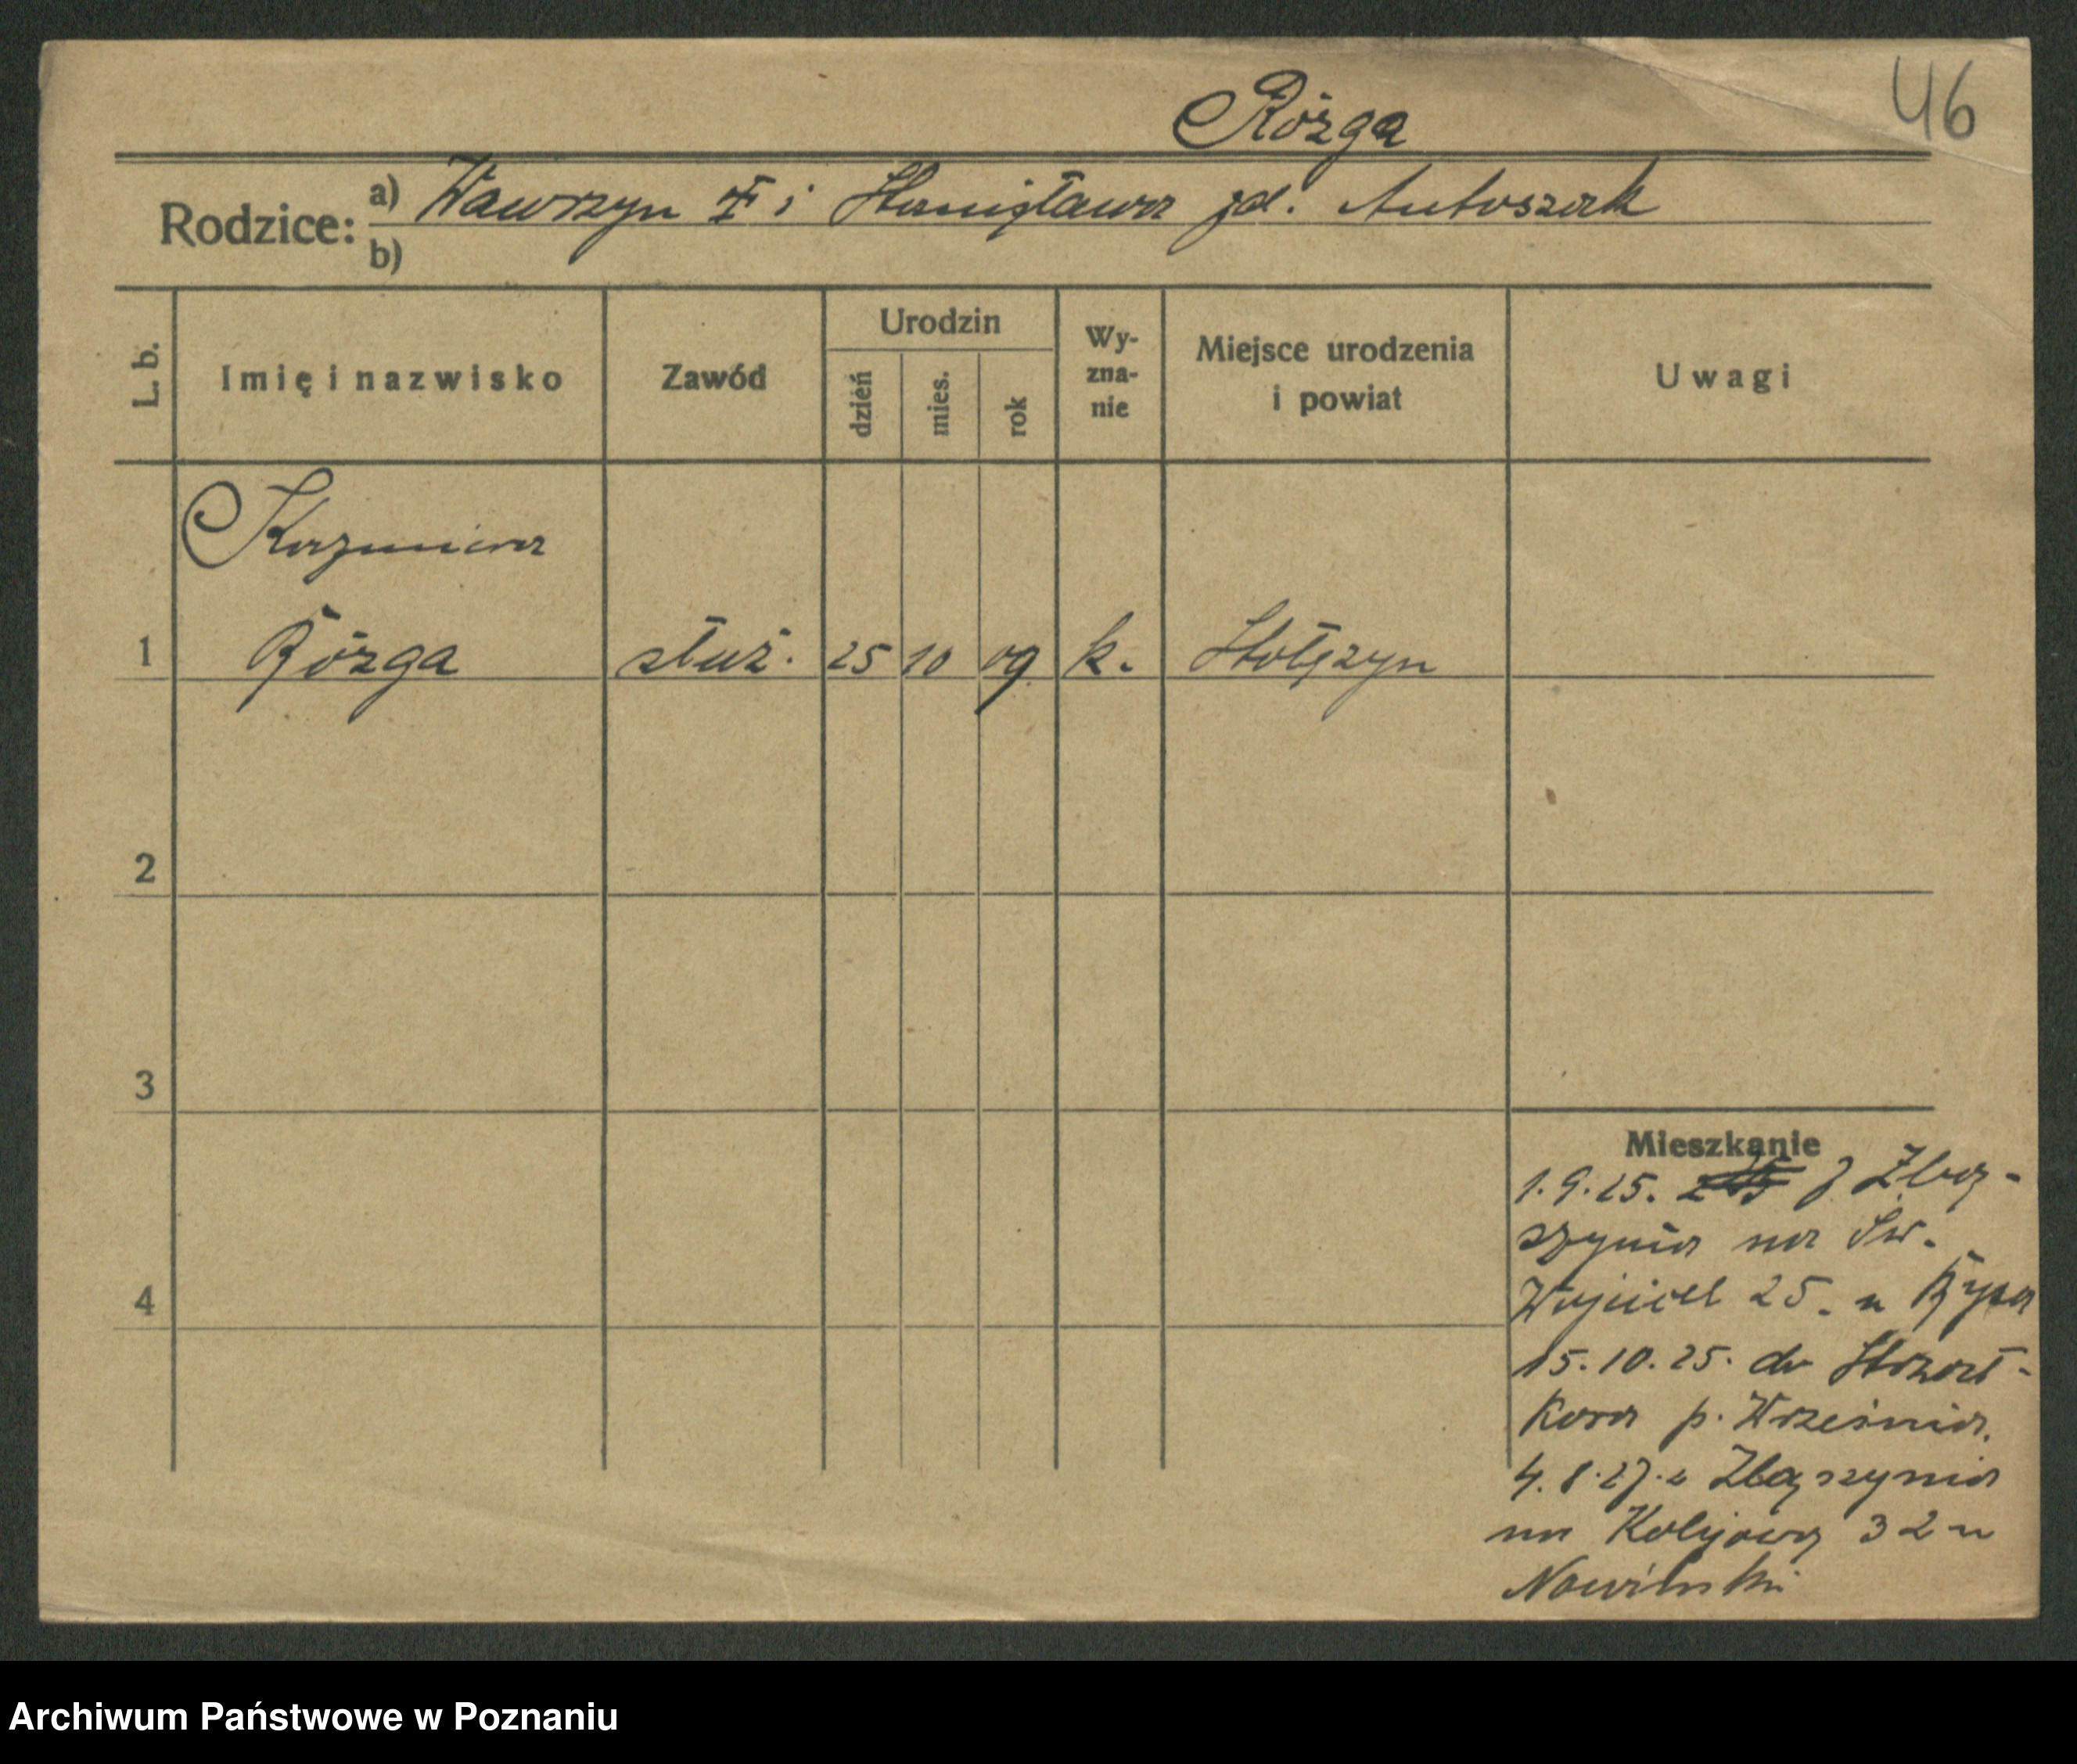 46
Rózga
Rodzice: a) Wawrzyn i Stanisława zd. Antoszak
b)
L. b.
Imię i nazwisko
Zawód
Urodzin
dzień
mies.
rok
Wy-
zna-
nie
Miejsce urodzenia
i powiat
Uwagi
Kazimiera
1 Rózga służ. 25 10 09 k. Stołęzyn
2
3
4
Mieszkanie
1.9.25. z Zbą-
szynia na Św.
Wojciech 25. u
15.10.25. do Strzał-
kowa p. Września.
4.8.27. z Zbąszynia
na Kolejową 32 u
Nowiński
Archiwum Państwowe w Poznaniu